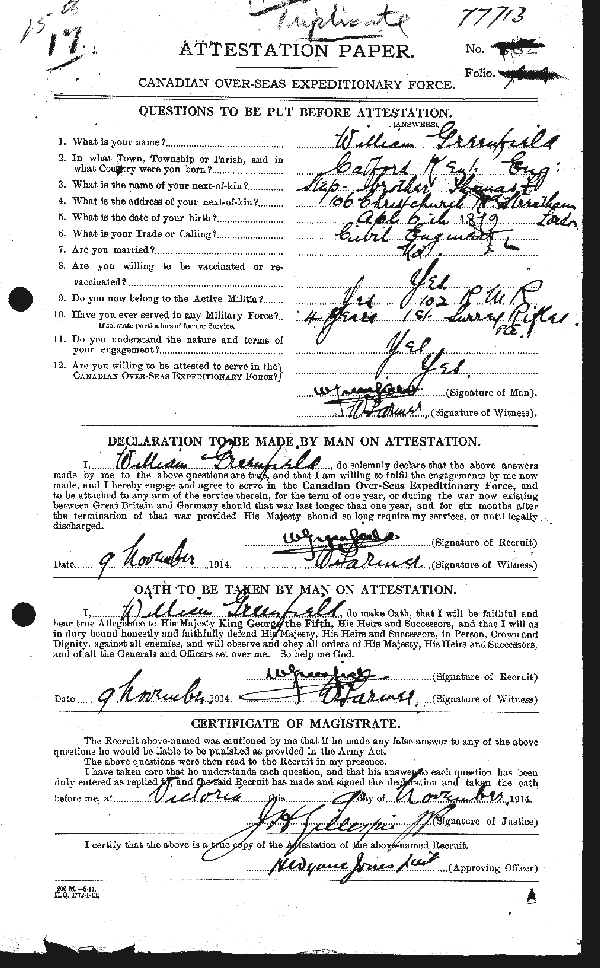 Triplicate
77713
15th
17.
ATTESTATION PAPER.
No.
Folio.
CANADIAN OVER-SEAS EXPEDITIONARY FORCE.
QUESTIONS TO BE PUT BEFORE ATTESTATION.
(ANSWERS)
1. What is your name? William Greenfield
2. In what Town, Township or Parish, and in
what Country were you born? Catford Kent Eng.
3. What is the name of your next-of-kin? Step-brother Thomas
4. What is the address of your next-of-kin? 106 Christchurch Rd Streatham
London
5. What is the date of your birth? Apl 6th 1879
6. What is your Trade or Calling? Civil Engineer
7. Are you married? No.
8. Are you willing to be vaccinated or re-
vaccinated? Yes
9. Do you now belong to the Active Militia? Yes 102 R M R
10. Have you ever served in any Military Force? 4 Years 1st Surrey Rifles
If so, state particulars of former Service.
11. Do you understand the nature and terms of
your engagement? Yes
12. Are you willing to be attested to serve in the
CANADIAN OVER-SEAS EXPEDITIONARY FORCE? Yes.
WGreenfield (Signature of Man).
(Signature of Witness).
DECLARATION TO BE MADE BY MAN ON ATTESTATION.
I, William Greenfield, do solemnly declare that the above answers
made by me to the above questions are true, and that I am willing to fulfil the engagements by me now
made, and I hereby engage and agree to serve in the Canadian Over-Seas Expeditionary Force, and
to be attached to any arm of the service therein, for the term of one year, or during the war now existing
between Great Britain and Germany should that war last longer than one year, and for six months after
the termination of that war provided His Majesty should so long require my services, or until legally
discharged.
WGreenfield (Signature of Recruit)
Date 9 November 1914. (Signature of Witness)
OATH TO BE TAKEN BY MAN ON ATTESTATION.
I, William Greenfield, do make Oath, that I will be faithful and
bear true Allegiance to His Majesty King George the Fifth, His Heirs and Successors, and that I will as
in duty bound honestly and faithfully defend His Majesty, His Heirs and Successors, in Person, Crown and
Dignity, against all enemies, and will observe and obey all orders of His Majesty, His Heirs and Successors,
and of all the Generals and Officers set over me. So help me God.
WGreenfield (Signature of Recruit)
Date 9 November 1914. (Signature of Witness)
CERTIFICATE OF MAGISTRATE.
The Recruit above-named was cautioned by me that if he made any false answer to any of the above
questions he would be liable to be punished as provided in the Army Act.
The above questions were then read to the Recruit in my presence.
I have taken care that he understands each question, and that his answer to each question has been
duly entered as replied to, and the said Recruit has made and signed the declaration and taken the oath
before me, at Victoria this 9 day of November 1914.
JH Gillespie JP (Signature of Justice)
I certify that the above is a true copy of the Attestation of the above-named Recruit.
Jones Lieut (Approving Officer)